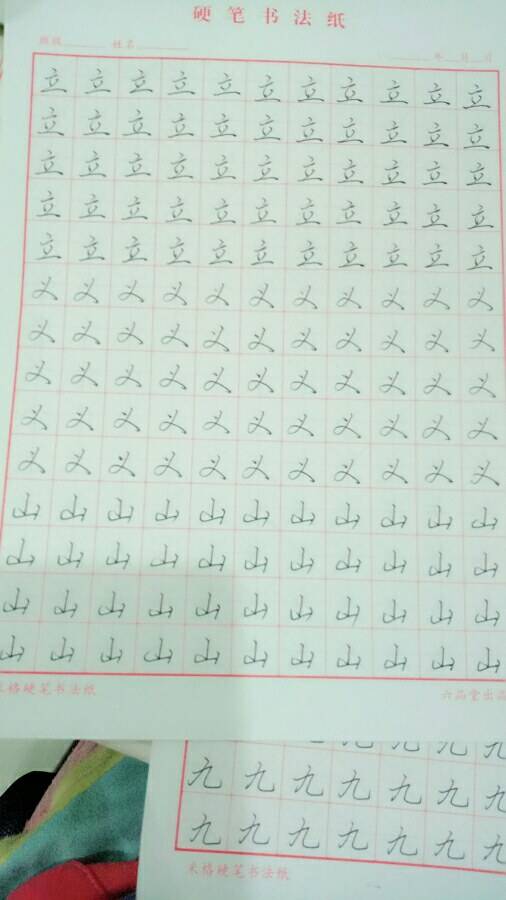 硬笔书法纸
班级 姓名 年 月 日
立立立立立立立立立立立
立立立立立立立立立立立
立立立立立立立立立立立
立立立立立立立立立立立
立立立立立立立立立立立
义义义义义义义义义义义
义义义义义义义义义义义
义义义义义义义义义义义
义义义义义义义义义义义
义义义义义义义义义义义
山山山山山山山山山山山
山山山山山山山山山山山
山山山山山山山山山山山
山山山山山山山山山山山
米格硬笔书法纸 六品堂出品
九九九九
九九九九九九九
九九九九九九九
米格硬笔书法纸